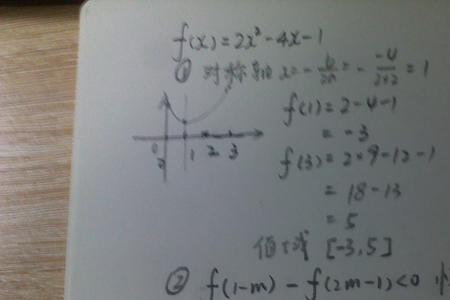 f(x)=2x²-4x-1
① 对称轴 x=-b/2a=-(-4)/(2×2)=1
f(1)=2-4-1
=-3
f(3)=2×9-12-1
=18-13
=5
1 2 3
值域 [-3,5]
② f(1-m)-f(2m-1)<0